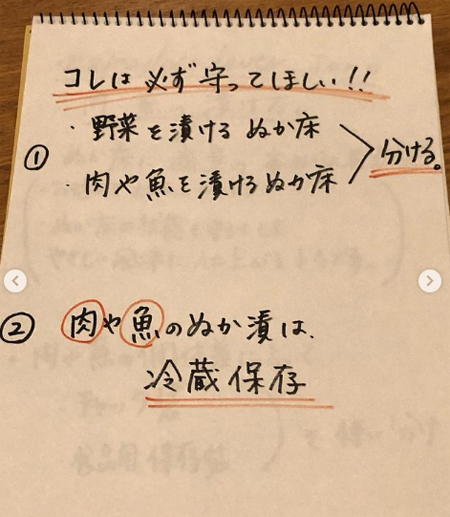 コレは必ず守ってほしい!!
・野菜を漬けるぬか床
① 分ける。
・肉や魚を漬けるぬか床
② 肉や魚のぬか漬は、
冷蔵保存